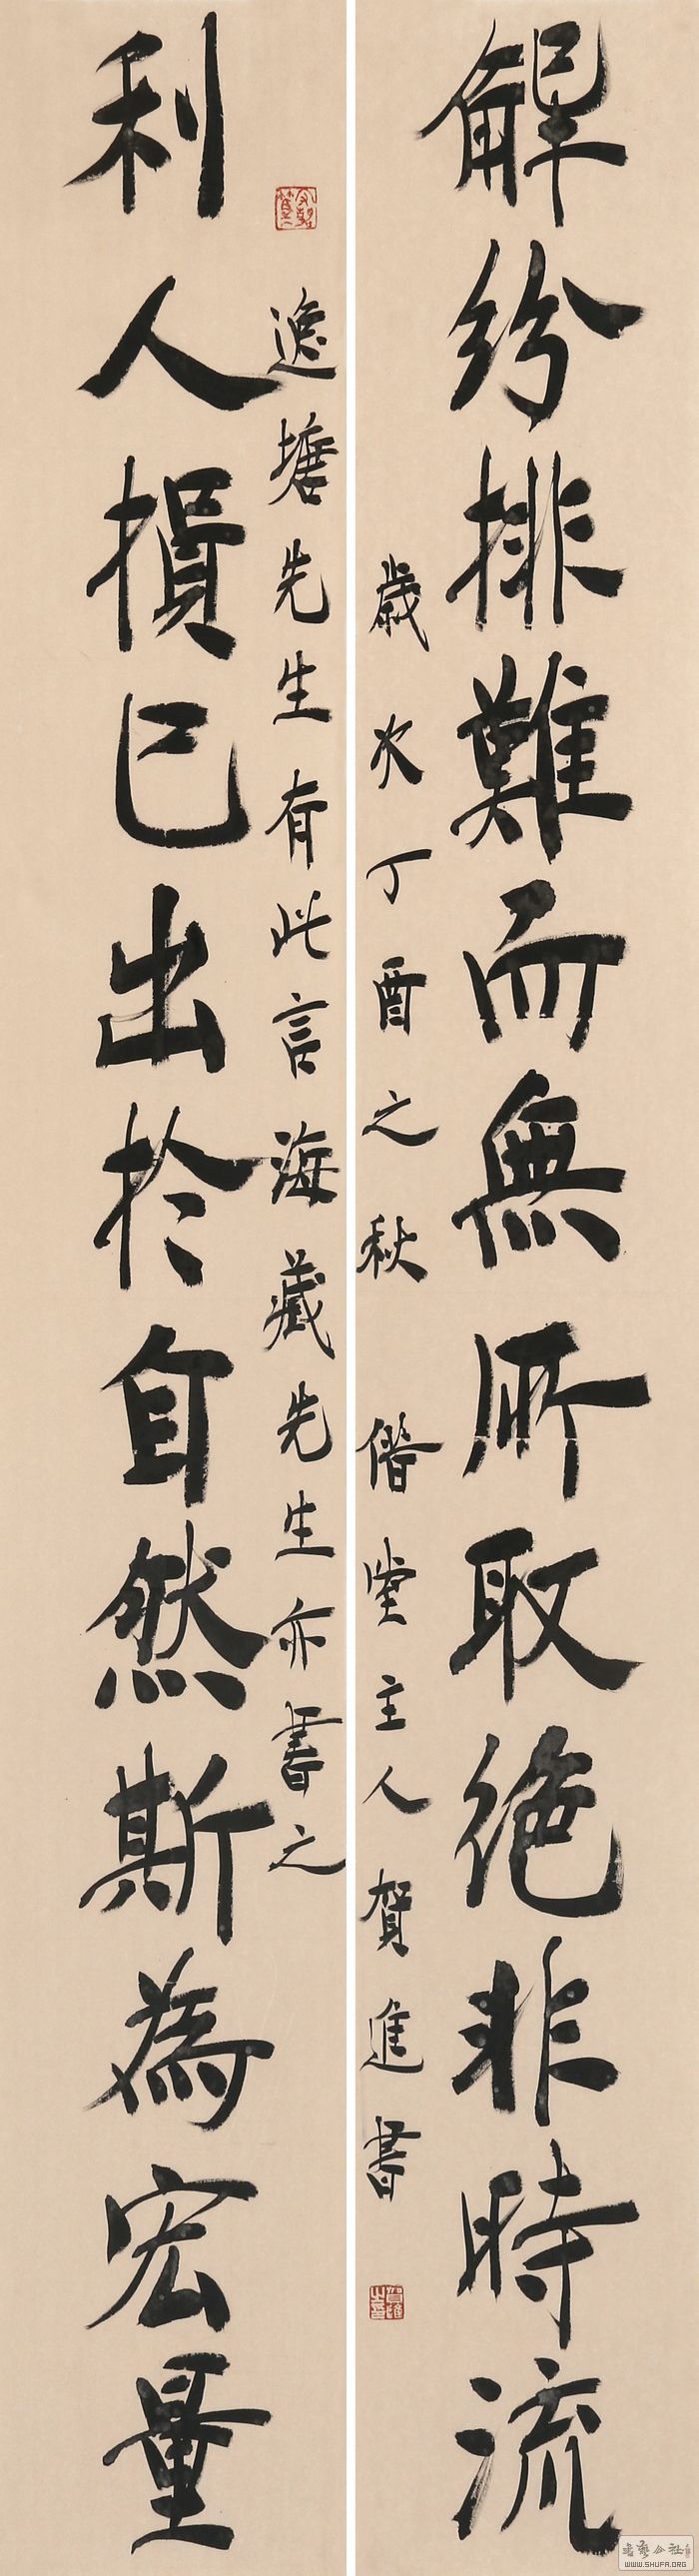 解紛排難而無所取絕非時流
歲次丁酉之秋 僭堂主人賀進書
逸塘先生有此言海藏先生亦書之
利人損己出於自然斯為宏量
書藝公社
WWW.SHUFA.ORG